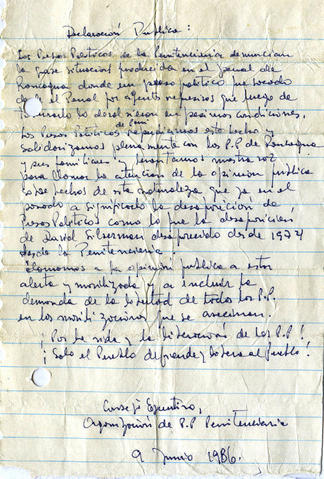 Declaración Pública:
Los Presos Políticos de la Penitenciaria denuncian
la grave situación producida en el penal de
Rancagua donde un preso político fue sacado
del Penal por agentes y presos que luego de
lo devolvieron en pésimas condiciones,
Los Presos Políticos repudiamos este hecho y
solidarizamos plenamente con los P.P de Rancagua
y sus familiares y levantamos nuestra voz
para llamar la atención de la opinión pública
sobre hechos de esta naturaleza que ya en el
pasado a significado la desaparición de
Presos Políticos como lo fue la desaparición
de David Silberman desaparecido desde 1974
desde la Penitenciaria
Llamamos a la opinión pública a estar
alerta y movilizada y a incluir la
demanda de la libertad de todos los P.P.
en las movilizaciones que se avecinan,
¡Por la vida y la liberación de los P.P!
¡Solo el Pueblo defiende y libera al pueblo!
Consejo Ejecutivo,
Organización de P.P Penitenciaria
9 Junio 1986.